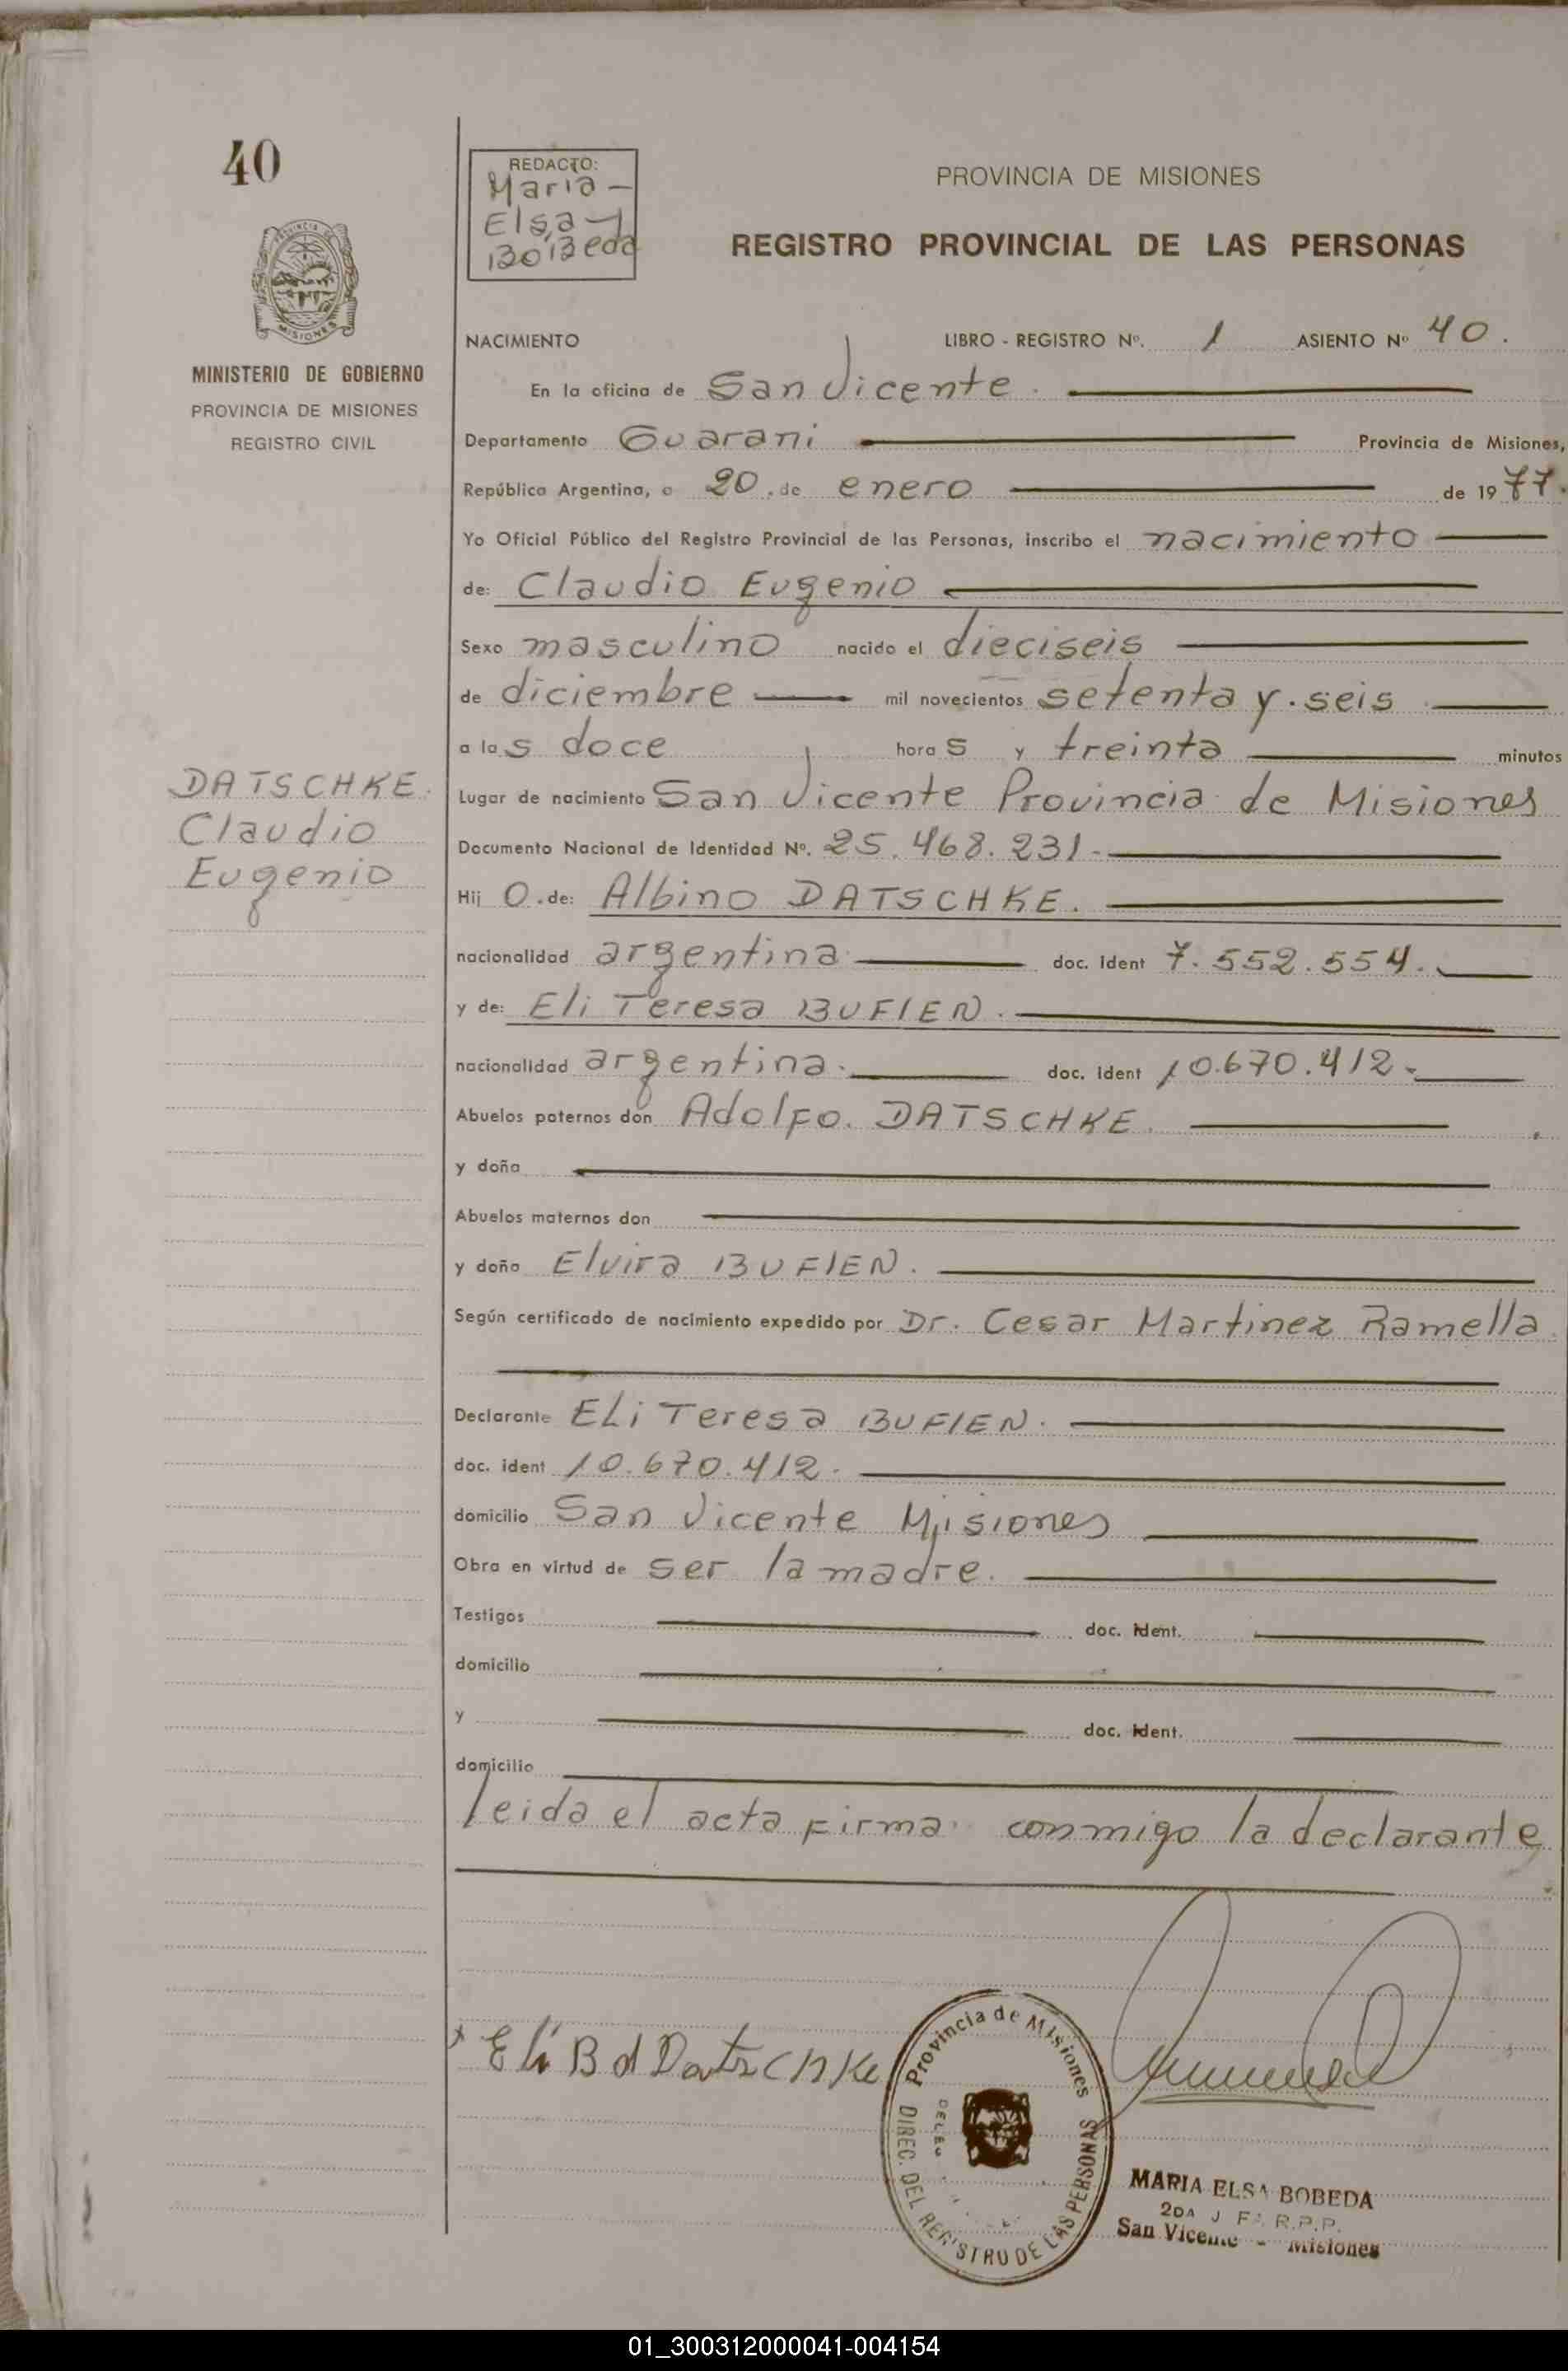 40
PROVINCIA DE
MISIONES
MINISTERIO DE GOBIERNO
PROVINCIA DE MISIONES
REGISTRO CIVIL
DATSCHKE.
Claudio
Eugenio
REDACTO:
Maria
Elsa
Bobeda
PROVINCIA DE MISIONES
REGISTRO PROVINCIAL DE LAS PERSONAS
NACIMIENTO LIBRO - REGISTRO Nº. 1 ASIENTO Nº 40.
En la oficina de San Vicente.
Departamento Guarani Provincia de Misiones,
República Argentina, a 20. de enero de 1977.
Yo Oficial Público del Registro Provincial de las Personas, inscribo el nacimiento
de: Claudio Eugenio
Sexo masculino nacido el dieciseis
de diciembre mil novecientos setenta y seis
a las doce horas y treinta minutos
Lugar de nacimiento San Vicente Provincia de Misiones
Documento Nacional de Identidad Nº. 25.468.231.
Hijo de: Albino DATSCHKE.
nacionalidad argentina doc. ident 7.552.554.
y de: Eli Teresa BUFIEN.
nacionalidad argentina. doc. ident 10.670.412.
Abuelos paternos don Adolfo. DATSCHKE.
y doña
Abuelos maternos don
y doña Elvira BUFIEN.
Según certificado de nacimiento expedido por Dr. Cesar Martinez Ramella.
Declarante ELi Teresa BUFIEN.
doc. ident 10.670.412.
domicilio San Vicente Misiones
Obra en virtud de ser la madre.
Testigos doc. ident.
domicilio
y doc. ident.
domicilio
leida el acta firma conmigo la declarante
Eli B d Datschke
Provincia de Misiones
DIREC. DEL REGISTRO DE LAS PERSONAS
MARIA ELSA BOBEDA
2DA J F R.P.P.
San Vicente - Misiones
01_300312000041-004154